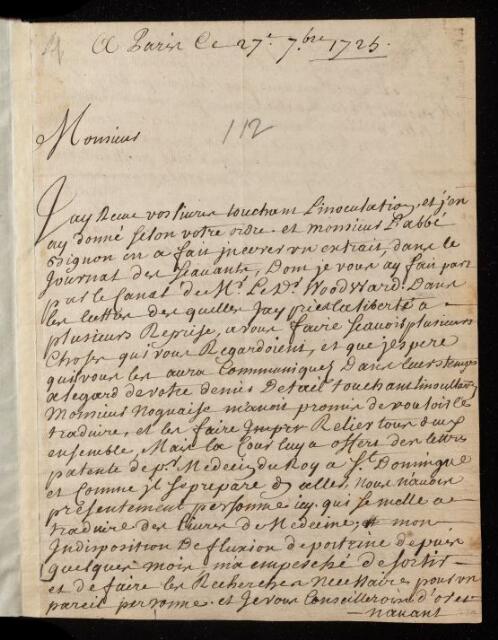 A Paris Ce 27e 7bre 1725.
112
Monsieur
J'ay Receu vos livres touchant L'inoculation, et j'en
ay donné selon votre ordre. et monsieur L'abbé
Bignon en a fait jnserer un extrait, dans le
Journal des Scauants, Dont je vous ay fait part
par le Canal de Mr. Le Dr. Woodward. Dans
les lettres des quelles Jay pris la liberté a
plusieurs Reprise, a vous faire scauoir plusieurs
Choses qui vous Regardoient, et que j'espere
qu'il vous les aura Communiquez Dans leurs temps
a legard de votre dernier Detail touchant linoculation
Monsieur Noguaise m'auoit promis de vouloir le
traduire, et les faire Relier tous deux
ensemble, Mais la Cour luy a offert des lettres
patente de pr. Medecin du Roy a St. Domingue
et Comme jl se prepare dy aller, nous n'auons
presentement personne jcy qui se melle de
traduire des Liures de Medecine, mon
Indisposition De fluxion de poitrine depuis
quelques mois ma empesché de sortir
et de faire les Recherches necessaires pour un
pareil personne. et Je vous Conseillerois D'ores
nauant